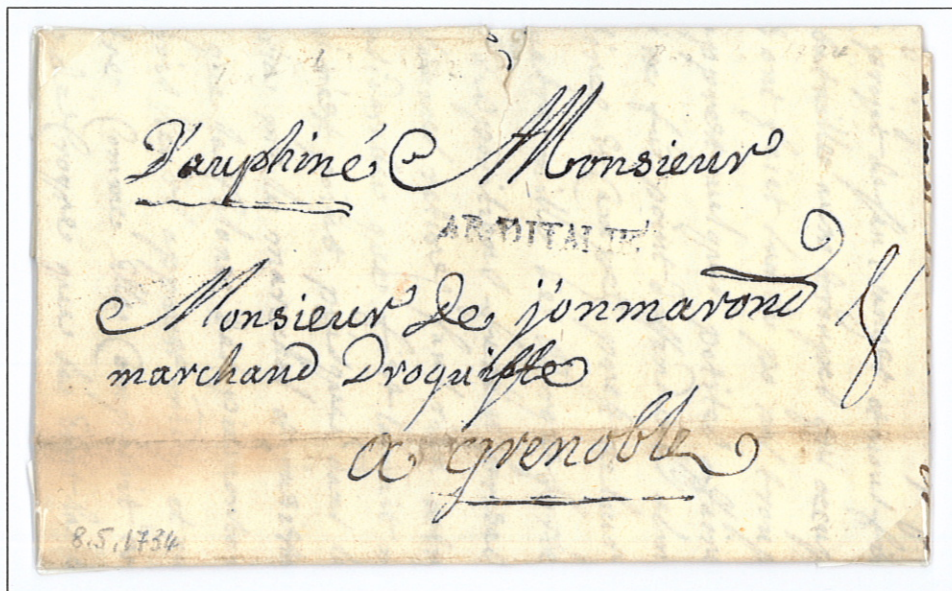 Dauphiné Monsieur
AR. D'ITALIE
Monsieur de jonmarond
marchand Droguiste
a grenoble
8
8.5.1734